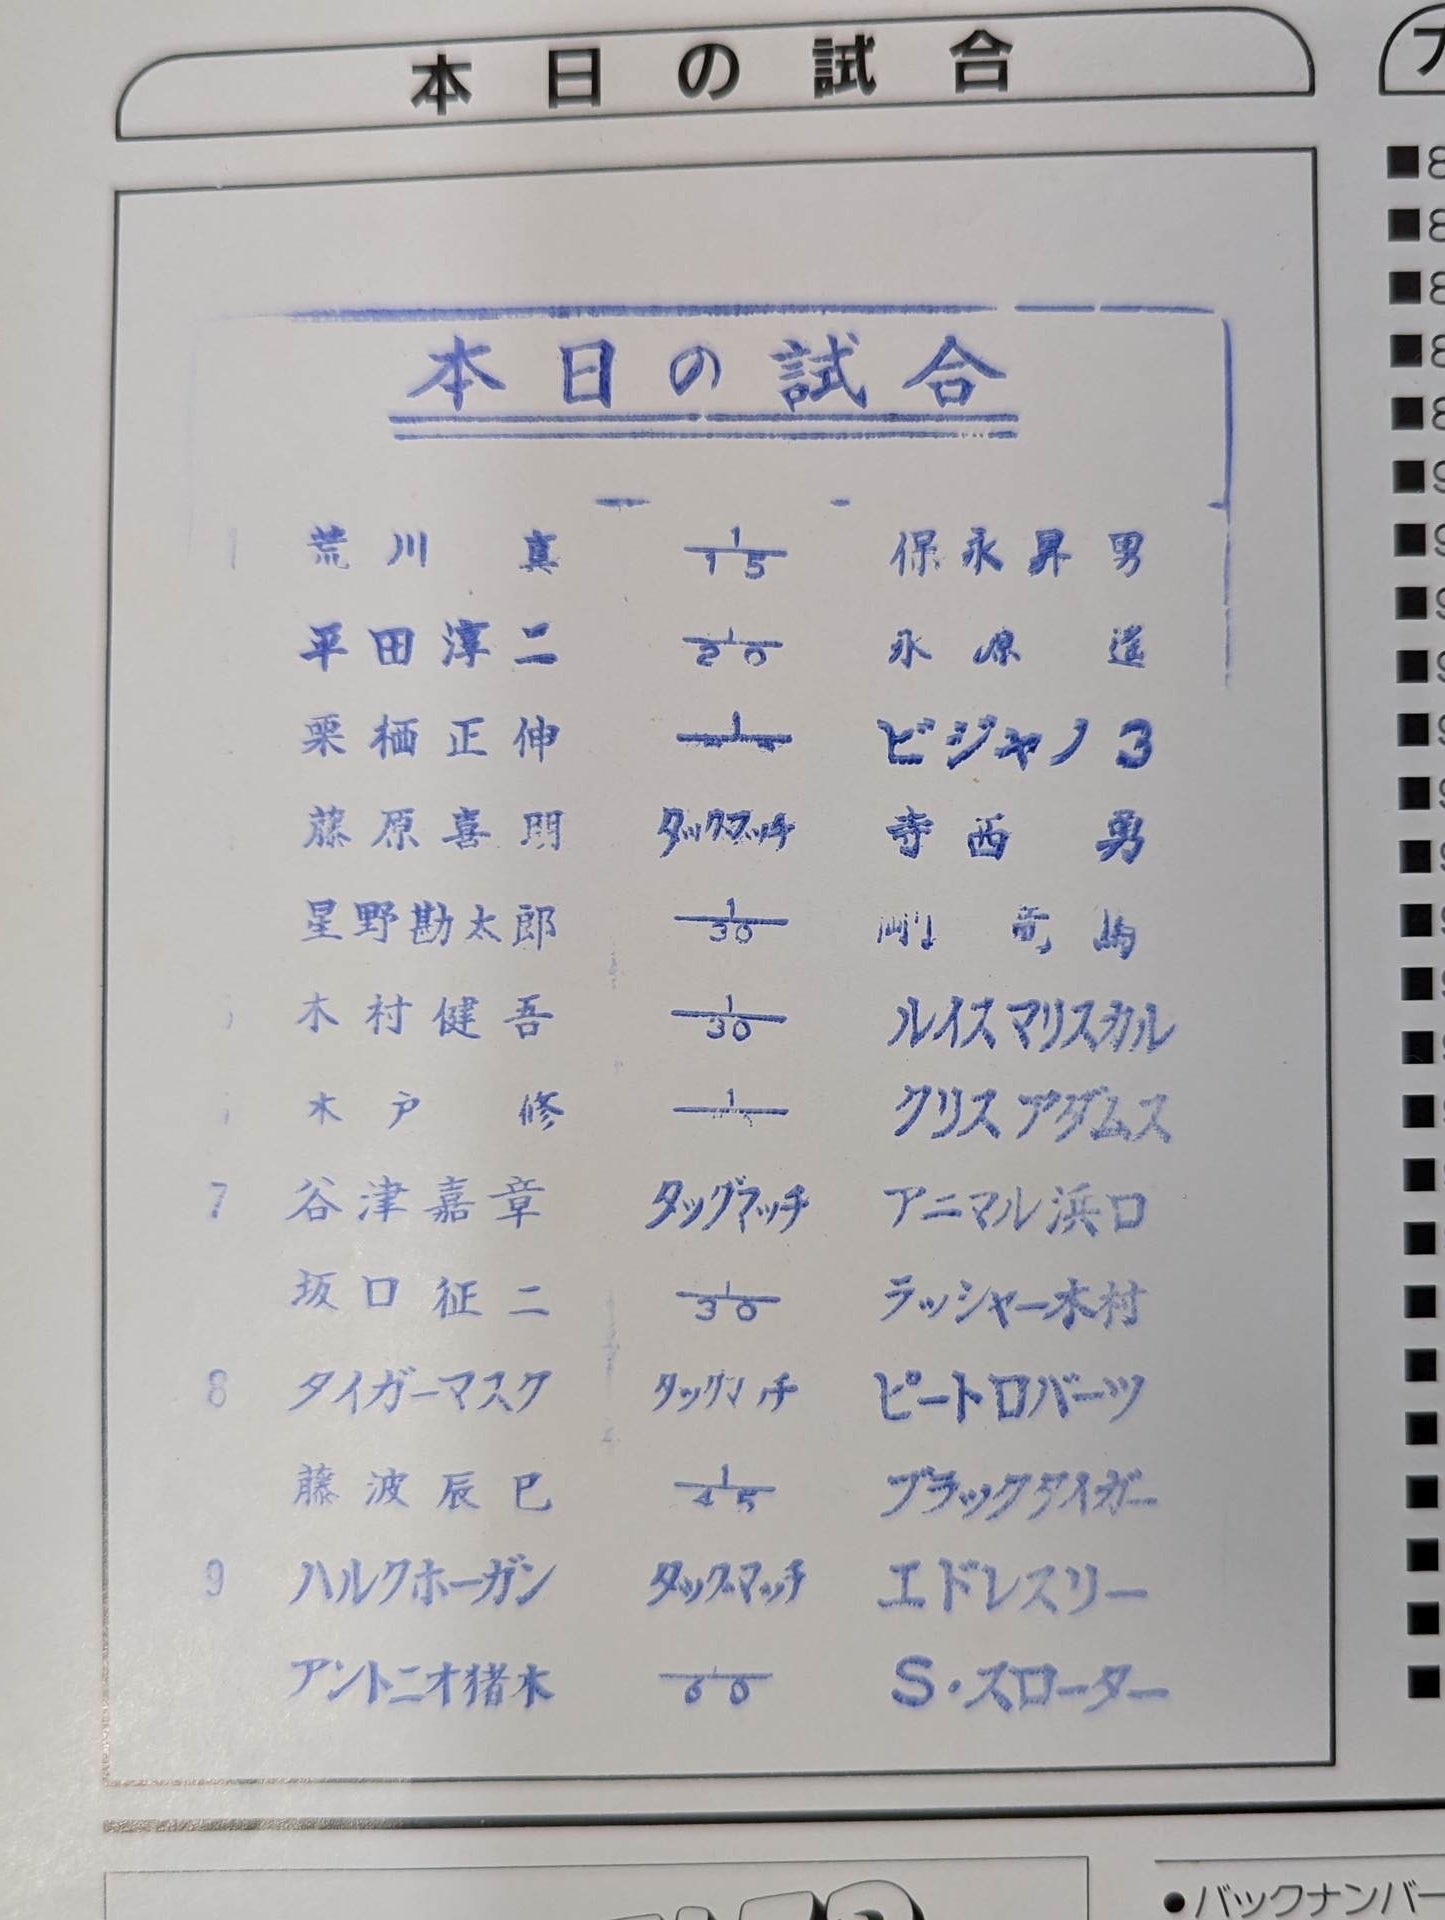 本日の試合
本日の試合
1 荒川 真 1/15 保永昇男
平田淳二 1/20 永源 遙
栗栖正伸 1 ビジャノ3
藤原喜明 タッグマッチ 寺西 勇
星野勘太郎 1/30 剛 竜馬
木村健吾 1/30 ルイスマリスカル
木戸 修 1 クリスアダムス
7 谷津嘉章 タッグマッチ アニマル浜口
坂口征二 1/30 ラッシャー木村
8 タイガーマスク タッグマッチ ピートロバーツ
藤波辰巳 1/45 ブラックタイガー
9 ハルクホーガン タッグマッチ エドレスリー
アントニオ猪木 1/60 S・スローター
●バックナンバー